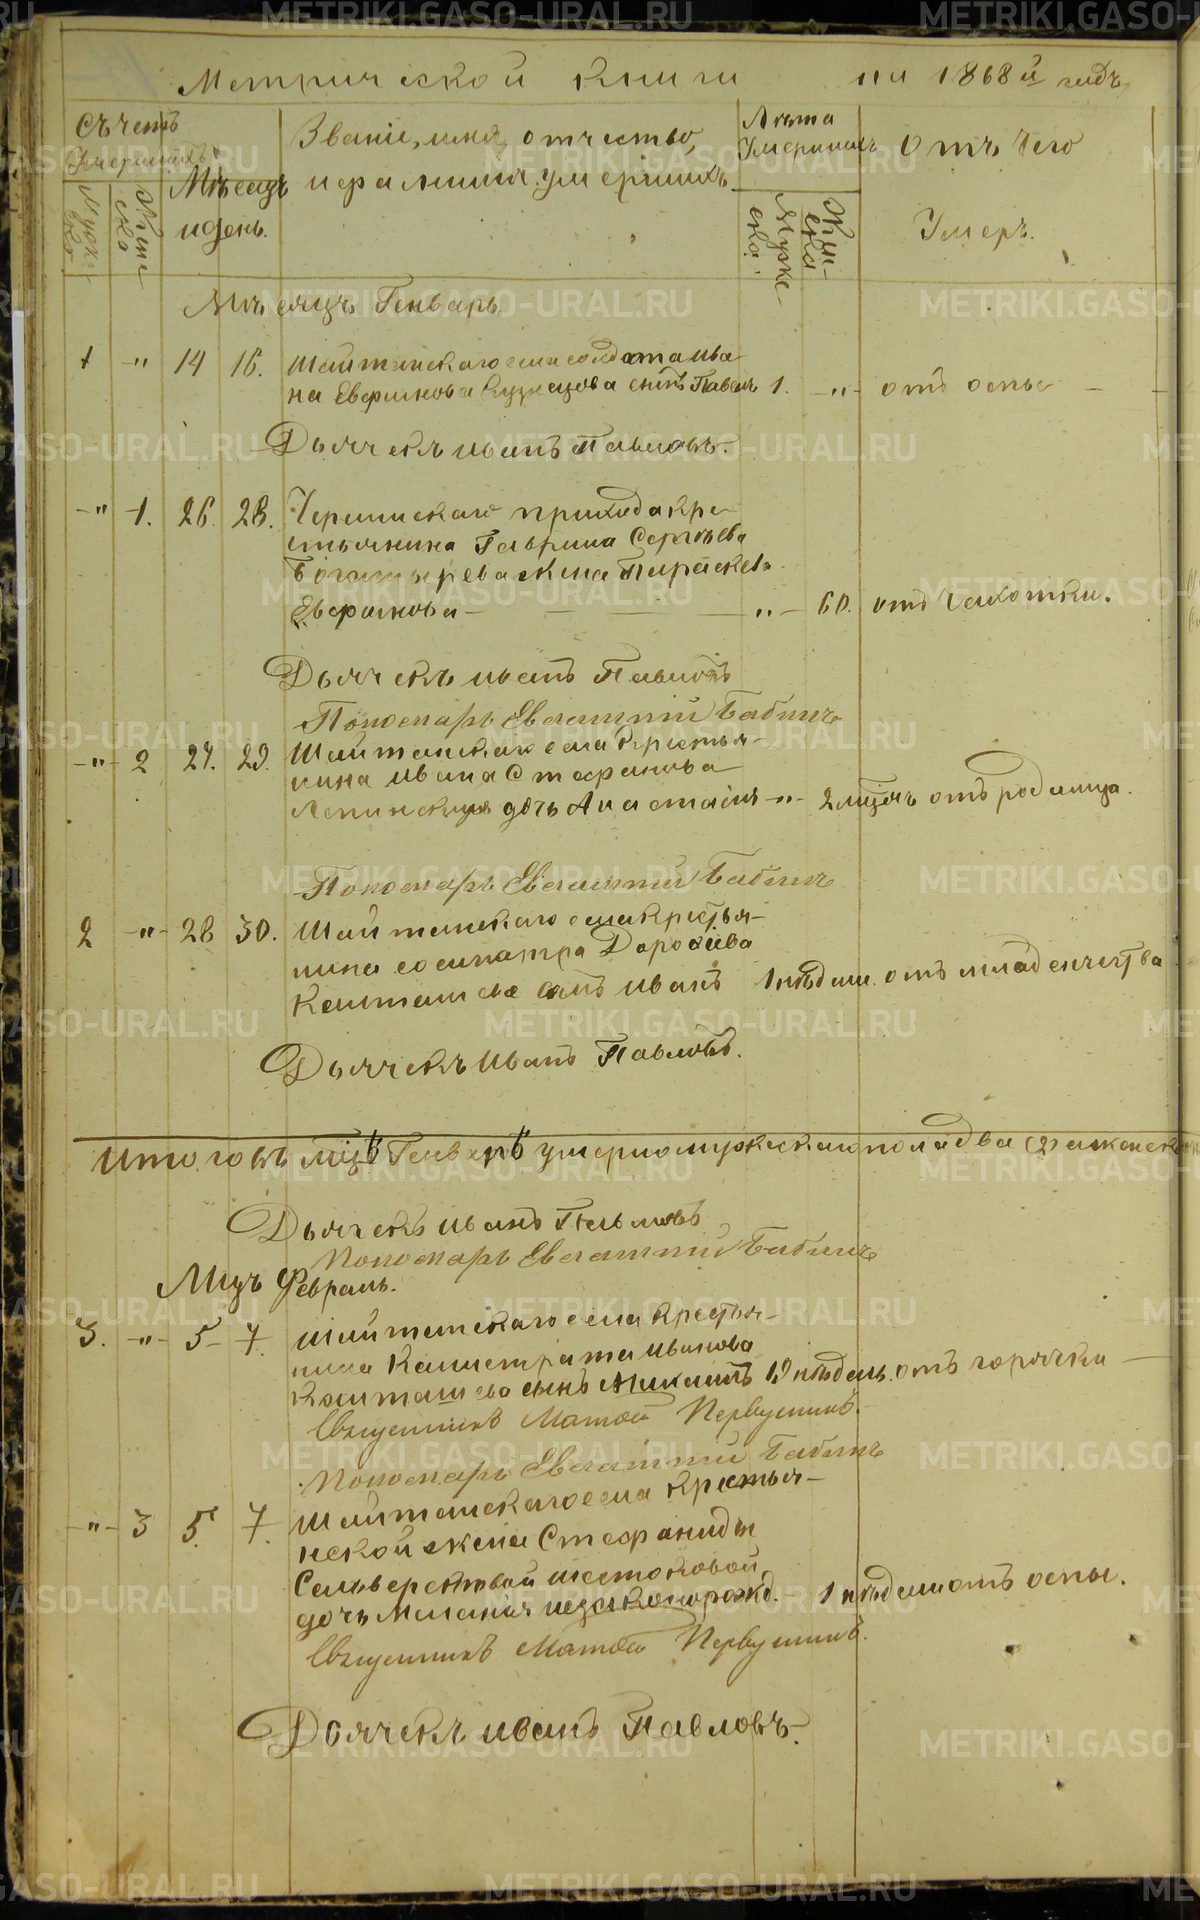 Метрической книги на 1868й годъ,
Счетъ умершихъ
Мужеска
Женска
Месецъ и день.
Званіе, имя, отчество,
и фамилия умершихъ
Лета умершихъ
Мужеска.
Женска
Отъ чего
Умеръ.
Месяцъ Генварь
1 -"- 14 16. Шайтанскаго села солдата Ива-
на Евфимова Кузнецова сынъ Павелъ 1. -"- отъ оспы -
Дьячекъ Иванъ Павловъ.
-"- 1. 26. 28. Черемискаго прихода кре-
стьянина Гаврила Сергѣева
Богатырева жена Параскева
Евфимова - " - 60. отъ чахотки.
Дьячекъ Иванъ Павловъ
Пономарь Евгампій Бабинъ
-"- 2 27. 29. Шайтанскаго села крестья-
нина Ивана Стефанова
дочь Анастасія -"- 2 мцовъ отъ родимца.
Пономарь Евгампій Бабинъ
2 -"- 28 30. Шайтанскаго села крестья-
нина Сосипатра Дорофеева
сынъ Иванъ 1 недели. отъ младенчества
Дьячекъ Иванъ Павловъ.
Итого въ мцѣ Генварѣ умерло мужескаго пола два (2) а женска
Дьячекъ Иванъ Павловъ
Пономарь Евгампій Бабинъ
Мцъ Февраль.
3. -"- 5 - 7. Шайтанскаго села крестья-
нина Калистрата Иванова
сынъ 12 недель. отъ горячки -
Священникъ Матфей Первушинъ.
Пономарь Евгампій Бабинъ
-"- 3 5. 7. Шайтанскаго села крестья-
нской жены Стефаниды
Сельверстовой Шестоковой
дочь Меланія незаконорожд. 1 недели отъ оспы.
Священникъ Матфей Первушинъ.
Дьячекъ Иванъ Павловъ.
METRIKI.GASO-URAL.RU